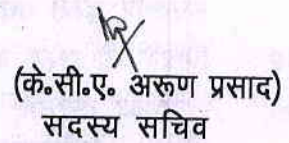 (के०सी०ए० अरूण प्रसाद)
सदस्य सचिव